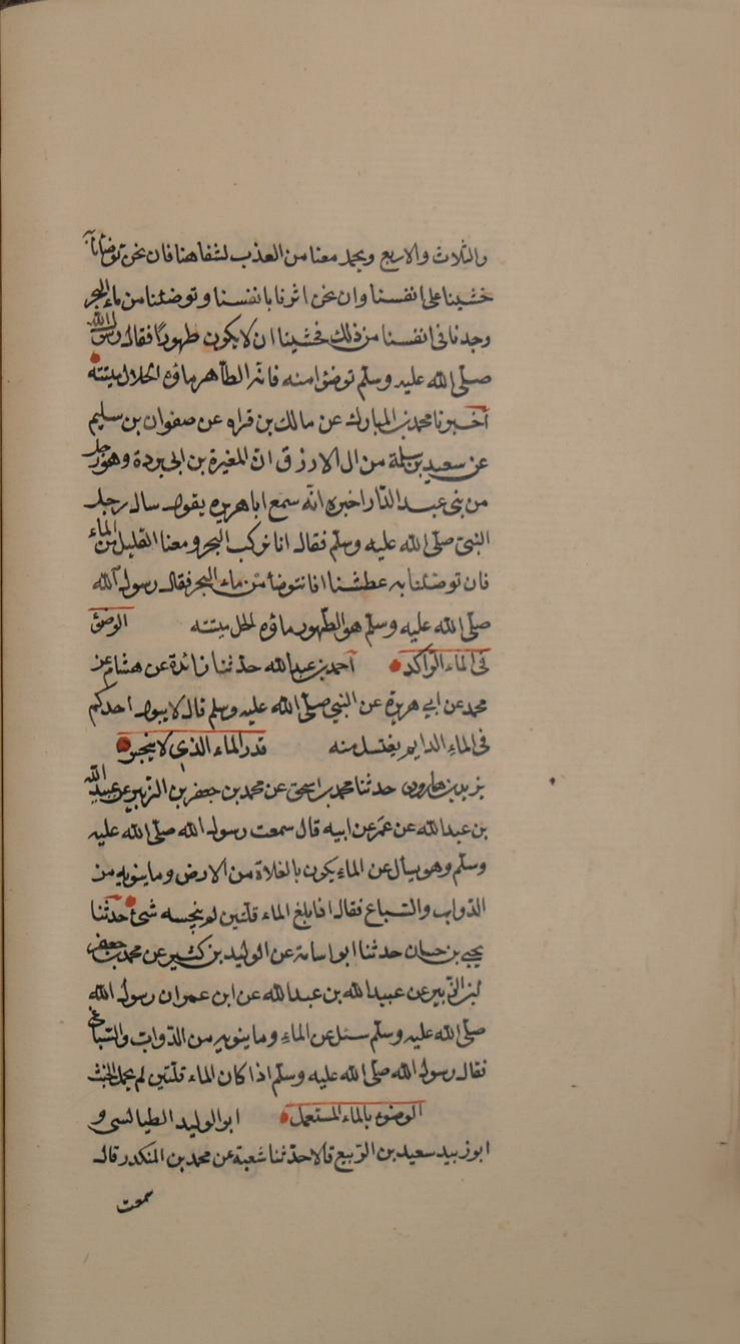 والثلاث والاربع ونحمل معنا من العذب لشفاهنا فان نحن توضأنا به
خشينا على انفسنا وان نحن اثرنا بانفسنا وتوضئنا من ماء البحر
وجدنا فى انفسنا من ذلك فخشينا ان لا يكون طهورًا فقال رسول الله
صلّى الله عليه وسلّم توضؤا منه فانّه الطّاهر ماؤه الحلال ميتته
أخبرنا محمد بن المبارك عن مالك بن قراه عن صفوان بن سليم
عن سعيد بن سلمة من ال الازرق انّ المغيرة بن ابى بردة وهو رجل
من بنى عبد الدّار اخبره انّه سمع ابا هريره يقول سال رجل
النبىّ صلّى الله عليه وسلّم فقال انا نركب البحر ومعنا القليل من الماء
فان توضئنا به عطشنا افانتوضأ من ماء البحر فقال رسول الله
صلّى الله عليه وسلّم هو الطّهور ماؤه الحل ميتته الوضؤ
فى الماء الرّاكد أحمد بن عبد الله حدّثنا زائدة عن هشام عن
محمد عن ابي هريرة عن النبي صلّى الله عليه وسلم قال لا يبول احدكم
فى الماء الدايم يغتسل منه قدر الماء الذى لا ينجس
يزيد بن هارون حدثنا محمد بن اسحق عن محمد بن جعفر بن الزبير عن عبيد الله
بن عبد الله عن عمر عن ابيه قال سمعت رسول الله صلّى الله عليه
وسلّم وهو يسأل عن الماء يكون بالفلاة من الارض وما ينوبه من
الدّواب والسّباع فقال اذا بلغ الماء قلّتين لم ينجسه شئ حدّثنا
يحيى بن حسان حدثنا ابو اسامة عن الوليد بن كثير عن محمد بن جعفر
ابن الزّبير عن عبيد الله بن عبد الله عن ابن عمر ان رسول الله
صلّى الله عليه وسلّم سئل عن الماء وما ينوبه من الدّواب والسّباع
فقال رسول الله صلّى الله عليه وسلّم اذا كان الماء قلّتين لم يحمل الخبث
الوضوء بالماء المستعمل ابو الوليد الطيالسى و
ابو زبيد سعيد بن الرّبيع قالا حدّثنا شعبة عن محمد بن المنكدر قال
سمعت